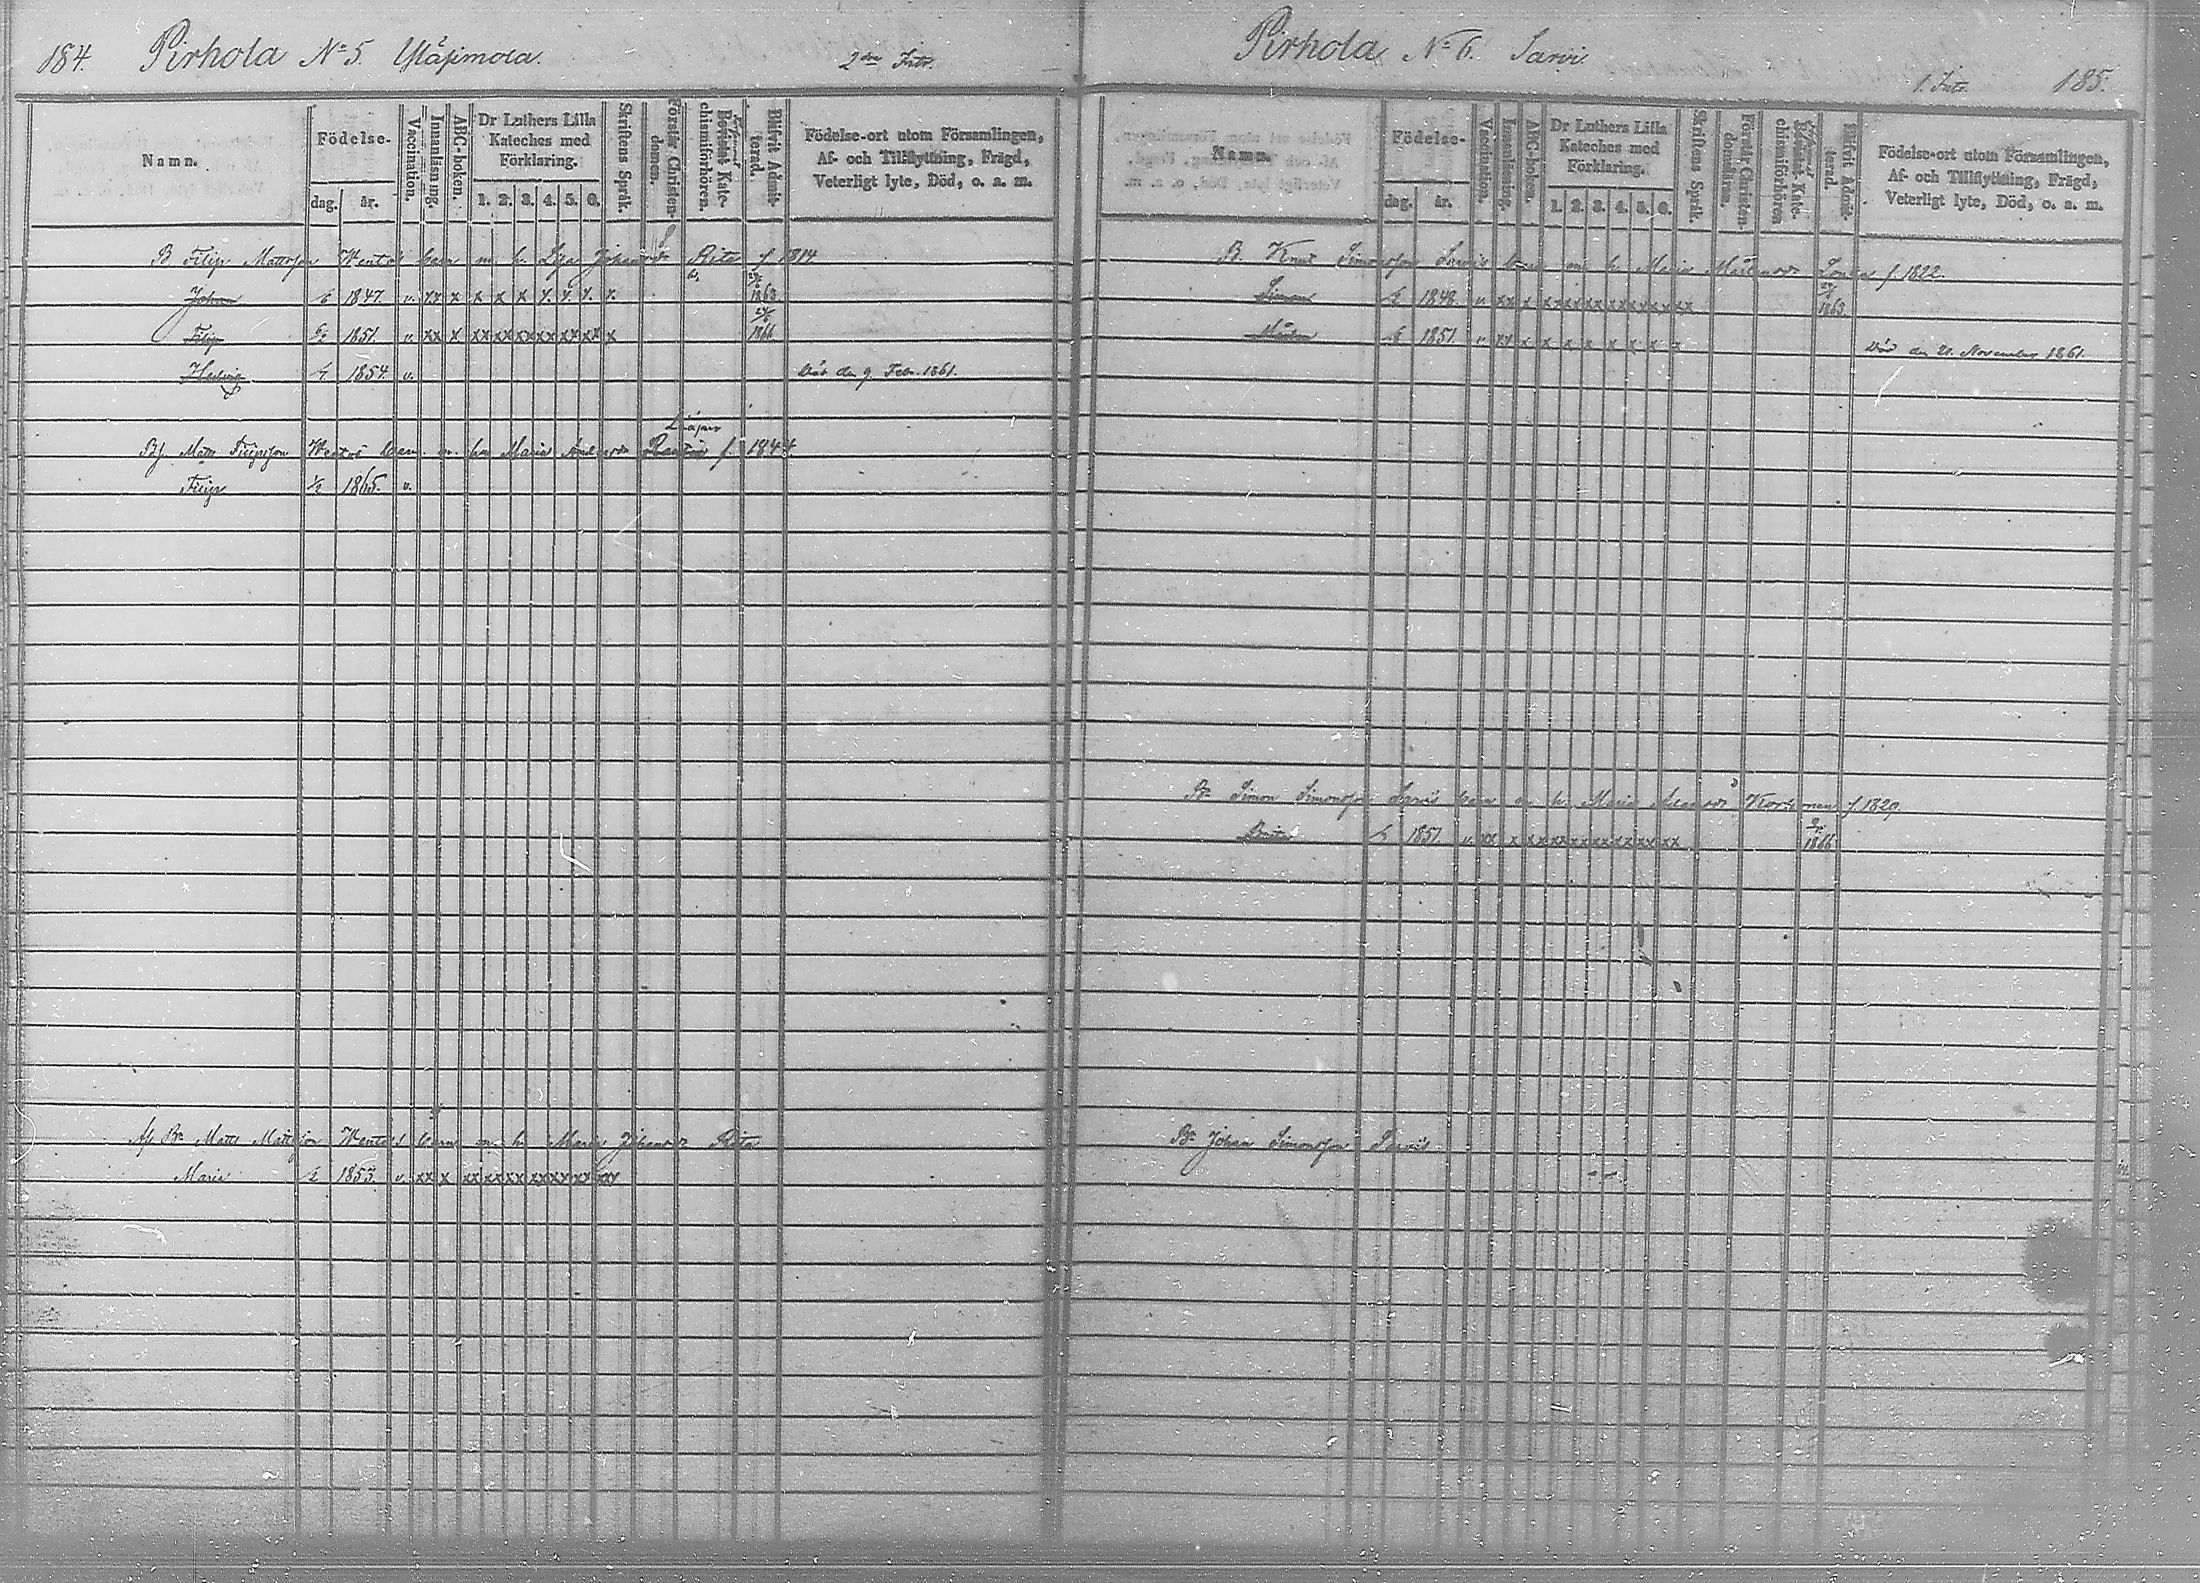 184. Pirhola No 5. Yläsimola. 2dra Intr.
Namn.
Födelse-
dag. år.
Vaccination.
Innanläsning.
ABC-boken.
Dr Luthers Lilla Kateches med Förklaring.
1. 2. 3. 4. 5. 6.
Skriftens Språk.
Förstår Christendomen.
Bevistat Katechismiförhören.
Blifvit Admitterad.
Födelse-ort utom Församlingen,
Af- och Tillflyttning, Frägd,
Veterligt lyte, Död, o. a. m.
B. Filip Mattsson Wentos barn m. h. Lisa Johansdr f 1814
Johan 1847. v. x x x x x x x x x 1863
Filip 1851. v. xx x xx xx xx xx xx xx x 1866
Hedvig 1854. v. Död den 9. Febr. 1861.
Bf Matts Filipsson Wentos barn m. hu Maria Andersdr f. 1844
Filip 1865. v.
Af Br Matts Mattsson Wentos barn m. h. Maria Johansdr
Maria 1853 v. xx x xx xx xx xx xx xx xx
Pirhola No 6. Sarvi.
1. Intr. 185.
Namn.
Födelse-
dag. år.
Vaccination.
Innanläsning.
ABC-boken.
Dr Luthers Lilla Kateches med Förklaring.
1. 2. 3. 4. 5. 6.
Skriftens Språk.
Förstår Christendomen.
Bevistat Katechismiförhören
Blifvit Admitterad.
Födelse-ort utom Församlingen,
Af- och Tillflyttning, Frägd,
Veterligt lyte, Död, o. a. m.
B. Knut Simonsson Sarvis barn m. h. Maria f. 1822.
Simon 1848. v xx x xx xx xx xx xx xx xx 1863.
Mårten 1851. v xx x x x x x x x x Död den 21. November 1861.
Br Simon Simonsson Sarvis barn m. h. Maria Korhonen f 1829
1851. v xx x xx xx xx xx xx xx xx 1866
Br Johan Simonsson Sarvis